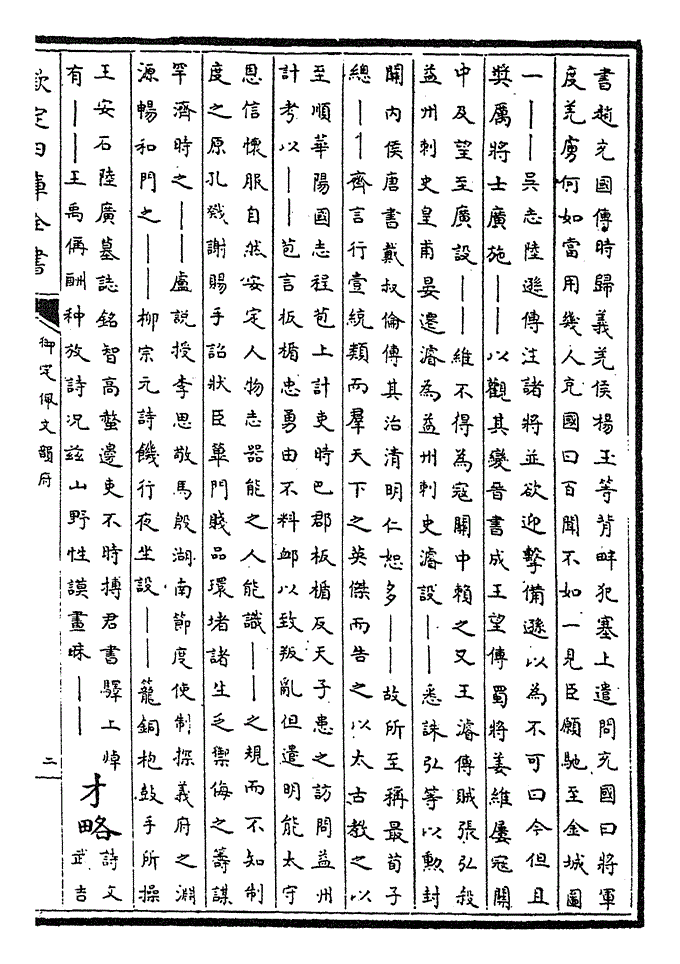 書趙充國傳時歸義羌侯楊玉等背畔犯塞上遣問充國曰將軍
度羌虜何如當用幾人充國曰百聞不如一見臣願馳至金城圖
一――吳志陸遜傳注諸將並欲迎擊備遜以為不可曰今但且
奬厲將士廣施――以觀其變晉書成王望傳蜀將姜維屢寇關
中及望至廣設――維不得為寇關中賴之又王濬傳賊張弘殺
益州刺史皇甫晏遷濬為益州刺史濬設――悉誅弘等以勲封
關內侯唐書戴叔倫傳其治清明仁恕多――故所至稱最荀子
總――齊言行壹統類而羣天下之英傑而告之以太古教之以
至順華陽國志程苞上計吏時巴郡板楯反天子患之訪問益州
計考以――苞言板楯忠勇由不料䘏以致叛亂但遣明能太守
恩信懷服自然安定人物志器能之人能識――之規而不知制
度之原孔戣謝賜手詔狀臣蓽門賤品環堵諸生乏禦侮之籌謀
罕濟時之――盧說授李思敬馬殷湖南節度使制探義府之淵
源暢和門之――柳宗元詩饑行夜坐設――籠銅枹鼓手所操
王安石陸廣墓誌銘智高螫邊吏不時搏君書驛上焯
有――王禹偁酬种放詩況兹山野性謨畫昧――
才略
詩文
武吉
欽定四庫全書
御定佩文韻府
二